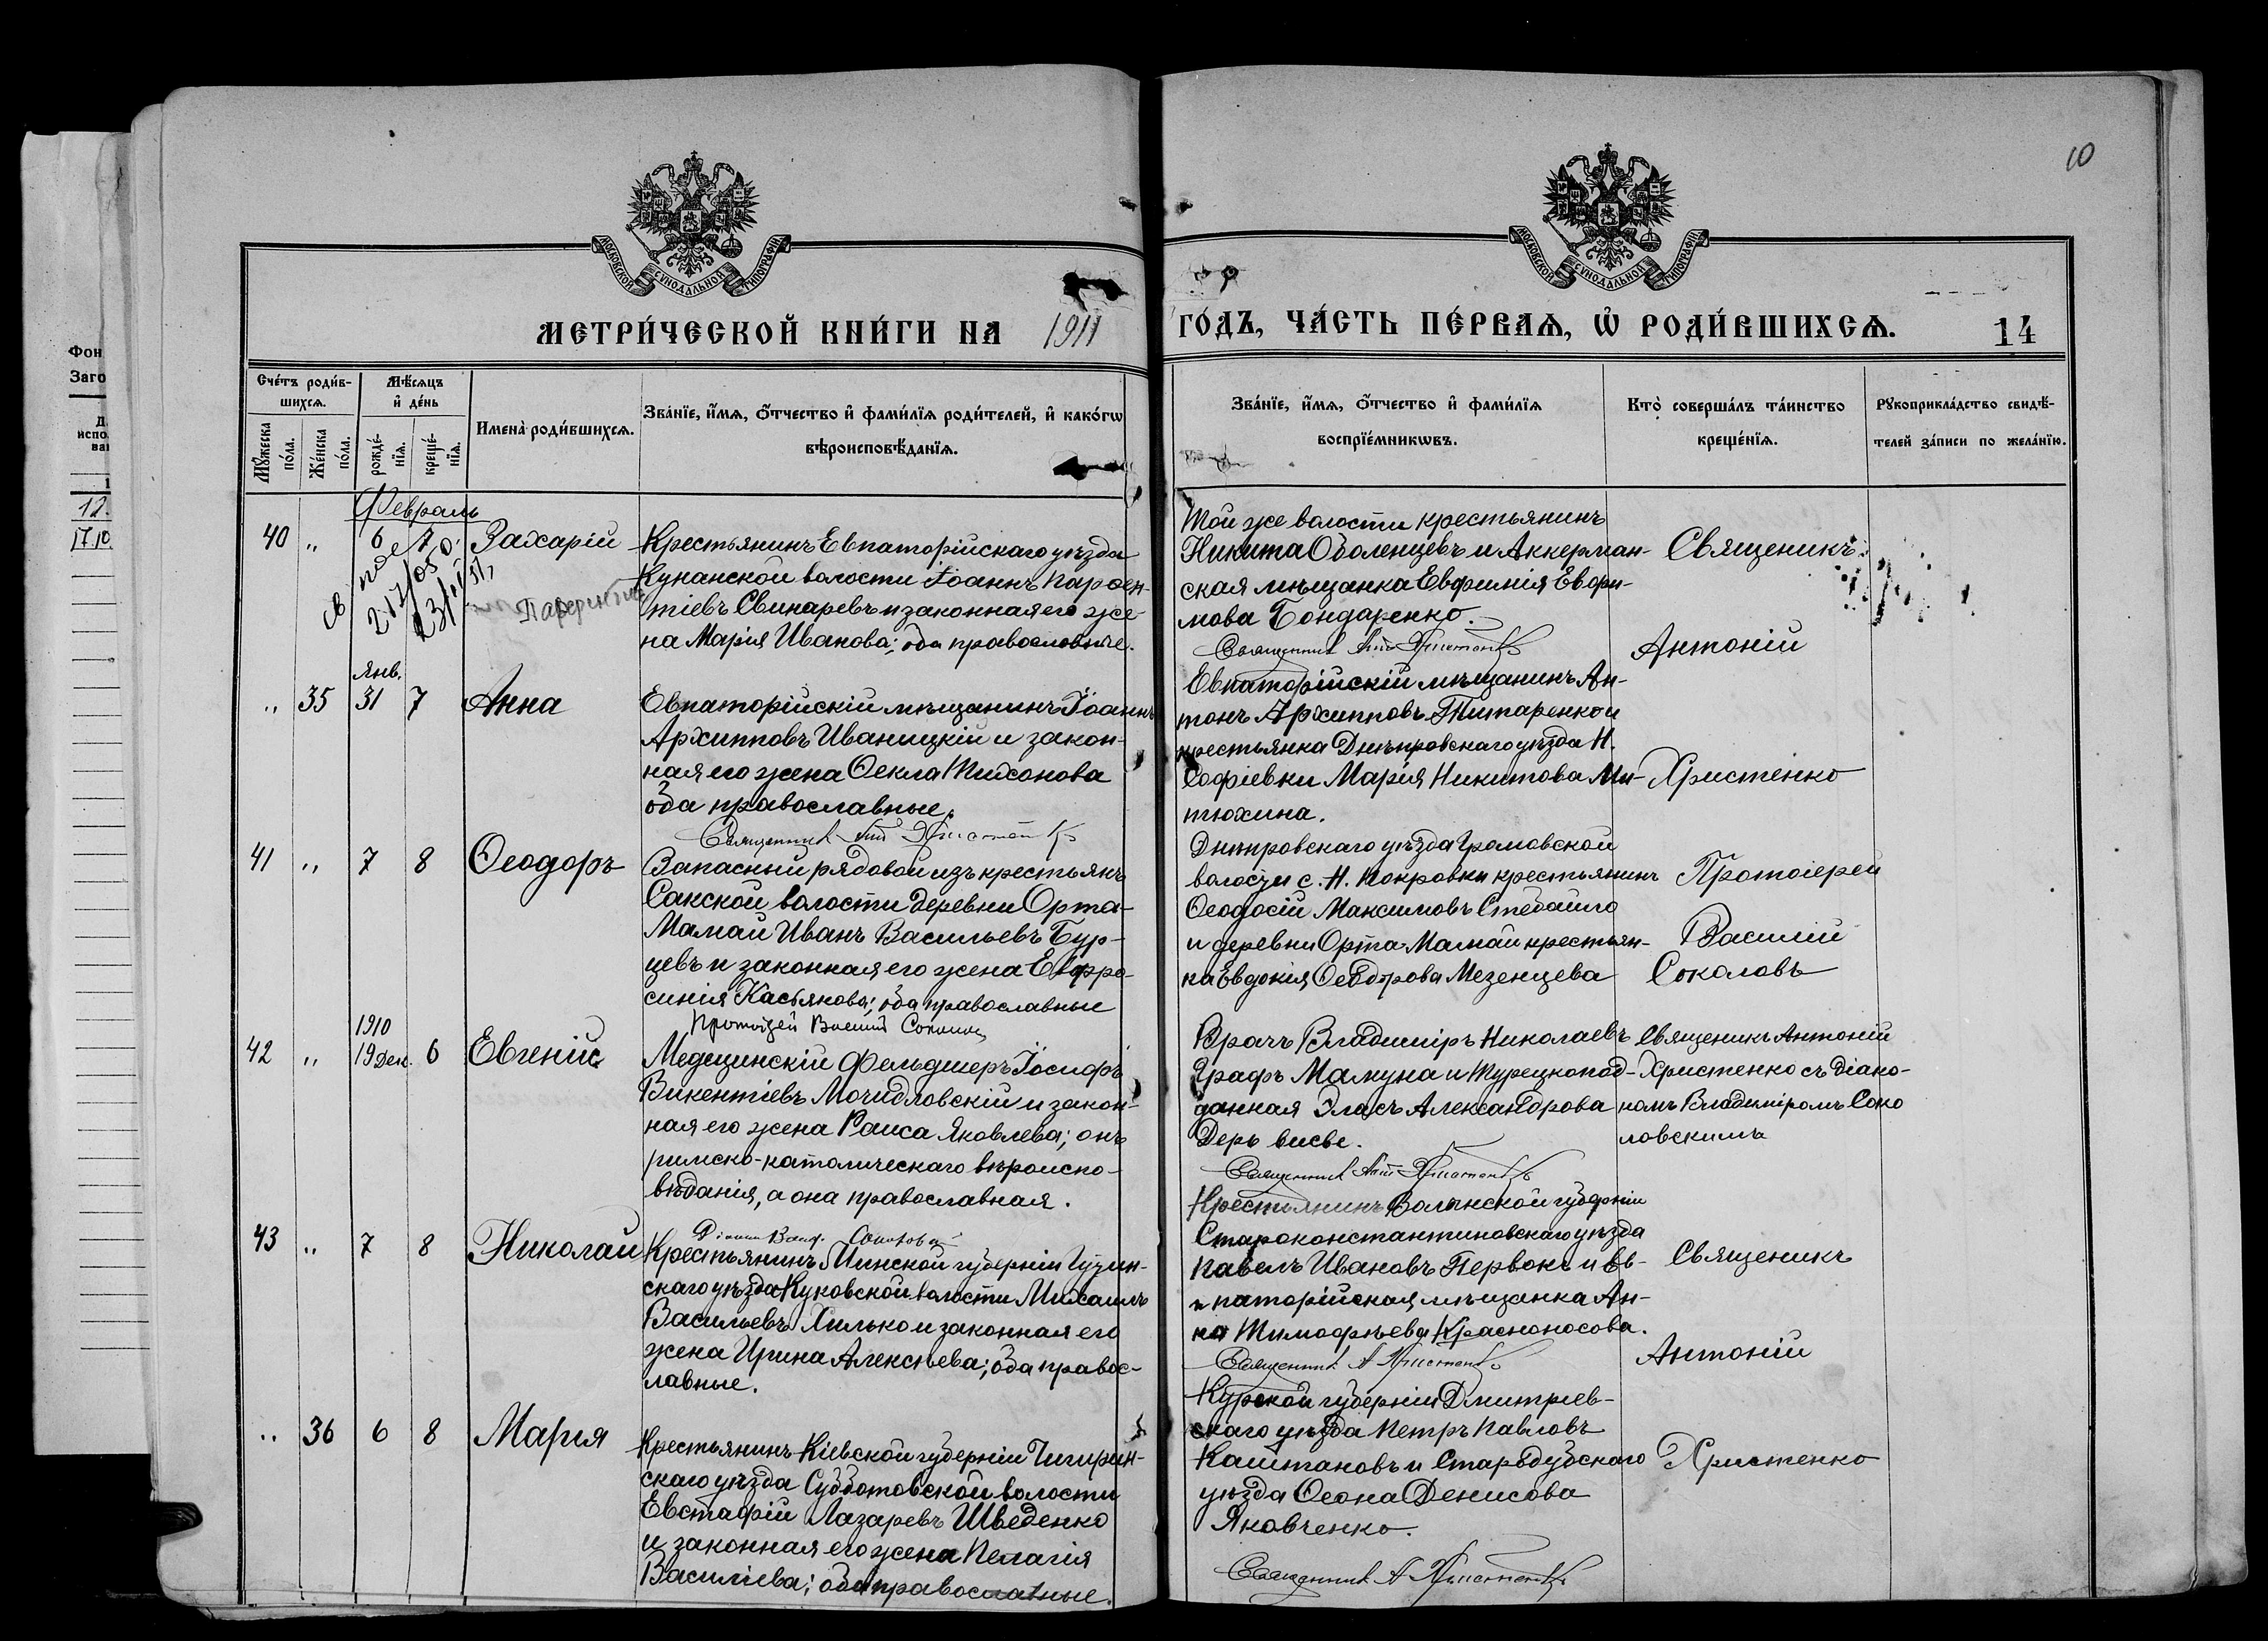 10
МОСКОВСКОЙ СУНОДАЛЬНОЙ ТИПОГРАФІИ
МОСКОВСКОЙ СУНОДАЛЬНОЙ ТИПОГРАФІИ
МЕТРИ́ЧЕСКОЙ КНИ́ГИ НА 1911 ГО́ДЪ, ЧА́СТЬ ПЕ́РВАѦ, Ѡ҆ РОДИ́ВШИХСѦ. 14
Фон
Заго
12.
17.10.
Сче́тъ роди́в-
шихсѧ.
Мꙋ́жеска по́ла.
Же́нска по́ла.
Мѣ́сѧцъ
и҆ де́нь
рожде́-
нїѧ.
креще́-
нїѧ.
Имена̀ роди́вшихсѧ.
Зва́нїе, и҆́мѧ, ѻ҆́тчество и҆ фами́лїѧ роди́телей, и҆ како́гѡ
вѣроисповѣ́данїѧ.
Зва́нїе, и҆́мѧ, ѻ҆́тчество и҆ фами́лїѧ
воспрїе́мникѡвъ.
Кто̀ соверша́лъ та́инство
креще́нїѧ.
Рꙋкоприкла́дство свидѣ́-
телей за́писи по жела́нїю.
Февраль
40 " 6 7 Захарій
Крестьянинъ Евпаторійскаго уѣзда
Кунанской волости Іоаннъ Парѳен-
тіевъ Свинаревъ и законная его же-
на Марія Иванова; оба православные.
Той же волости крестьянинъ
Никита Оболенцевъ и Аккерман-
ская мѣщанка Евфимія Евфи-
мова Бондаренко.
Священник Ант Христенко
Священикъ
Антоній
Христенко
" 35 Янв. 31 7 Анна
Евпаторійскій мѣщанинъ Іоаннъ
Архипповъ Иваницкій и закон-
ная его жена Ѳекла Тихонова
оба православные.
Священник Ант Христенко
Евпаторійскій мѣщанинъ Ан-
тонъ Архипповъ Титаренко и
крестьянка Днѣпровскаго уѣзда Н.
Софіевки Марія Никитова Ми-
тюхина.
41 " 7 8 Ѳеодоръ
Запасный рядовой изъ крестьянъ
Сакской волости деревни Орта-
Мамай Иванъ Васильевъ Бур-
цевъ и законная его жена Евфро-
синія Касьянова; оба православные
Протоіерей Василий Соколов
Днѣпровскаго уѣзда Громовской
волости с. Н. Покровки крестьянинъ
Ѳеодосій Максимовъ Стебайло
и деревни Орта-Мамай крестьян-
ка Евдокія Ѳеодорова Мезенцева
Протоіерей
Василій
Соколовъ
42 " 1910 19 Дек. 6 Евгеній
Медецинскій фельдшеръ Іосифъ
Викентіевъ Мочидловскій и закон-
ная его жена Раиса Яковлева; онъ
римско-католическаго вѣроиспо-
вѣданія, а она православная.
Врачъ Владиміръ Николаевъ
Графъ Мамуна и Турецкопод-
данная Эласъ Александрова
Деръ висве.
Священник Ант Христенко
Священикъ Антоній
Христенко съ діако-
номъ Владиміромъ Соко
ловскимъ
43 " 7 8 Николай
Крестьянинъ Минской губерніи
скаго уѣзда Куковской волости Михаилъ
Васильевъ Хилько и законная его
жена Ирина Алексѣева; оба правос-
лавные.
Крестьянинъ Волынской губерніи
Староконстантиновскаго уѣзда
Павелъ Ивановъ Первокъ и Ев-
паторійская мѣщанка Ан-
на Тимофѣева Красноносова.
Священник А Христенко
Священикъ
Антоній
Христенко
" 36 6 8 Марія
Крестьянинъ Кіевской губерніи Чигирин-
скаго уѣзда Субботовской волости
Евстафій Лазаревъ Шведенко
и законная его жена Пелагія
Василіева; оба православные.
Курской губерніи Дмитріев-
скаго уѣзда Петръ Павловъ
Каштановъ и Стародубскаго
уѣзда Ѳеона Денисова
Яковченко.
Священник А Христенко